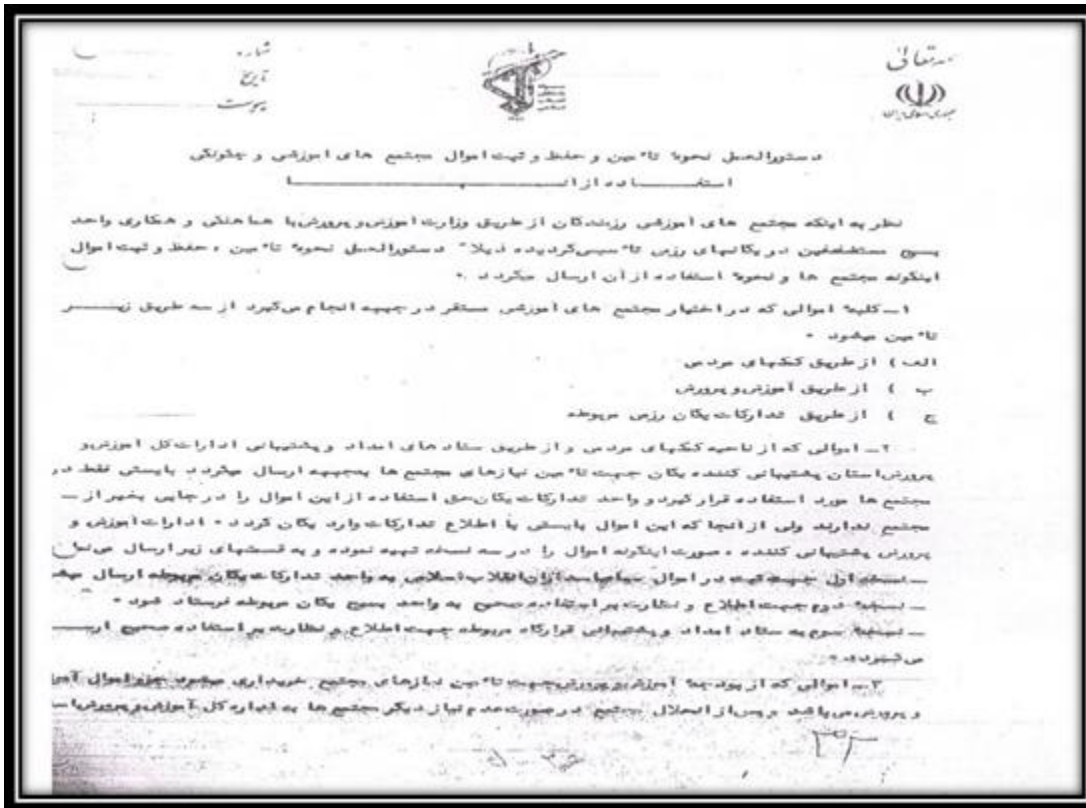 بسمه تعالی
جمهوری اسلامی ایران
شماره
تاریخ
پیوست
دستورالعمل نحوهٔ تاٴمین و حفظ و ثبت اموال مجتمع های آموزشی و چگونگی
استفــاده از آنــها
نظر به اینکه مجتمع های آموزشی رزمندگان از طریق وزارت آموزش و پرورش با هماهنگی و همکاری واحد
بسیج مستضعفین در یگانهای رزمی تاٴسیس گردیده ذیلا" دستورالعمل نحوهٔ تاٴمین ، حفظ و ثبت اموال
اینگونه مجتمع ها و نحوهٔ استفاده از آن ارسال میگردد .
۱ــ کلیهٔ اموالی که در اختیار مجتمع های آموزشی مستقر در جبهه انجام میگیرد از سه طریق زیــر
تاٴمین میشود .
الف ) از طریق کمکهای مردمی
ب ) از طریق آموزش و پرورش
ج ) از طریق تدارکات یگان رزمی مربوطه
۲ــ اموالی که از ناحیه کمکهای مردمی و از طریق ستادهای امداد و پشتیبانی ادارات کل آموزش و
پرورش استان پشتیبانی کننده یگان جهت تاٴمین نیازهای مجتمع ها بجبهه ارسال میگردد بایستی فقط در
مجتمع ها مورد استفاده قرار گیرد و واحد تدارکات یگان حق استفاده از این اموال را در جایی بغیر از ــ
مجتمع ندارند ولی از آنجا که این اموال بایستی با اطلاع تدارکات وارد یگان گردد . ادارات آموزش و
پرورش پشتیبانی کننده ، صورت اینگونه اموال را در سه نسخه تهیه نموده و به قسمتهای زیر ارسال می
ــ نسخه اول جهت ثبت در اموال سپاه پاسداران انقلاب اسلامی به واحد تدارکات یگان مربوطه ارسال
ــ نسخهٔ دوم جهت اطلاع و نظارت بر استفاده صحیح به واحد بسیج یگان مربوطه فرستاد شود .
ــ نسخهٔ سوم به ستاد امداد و پشتیبانی قرارگاه مربوطه جهت اطلاع و نظارت بر استفاده صحیح
۳ــ اموالی که از بودجهٔ آموزش و پرورش جهت تاٴمین نیازهای مجتمع خریداری میشود جزو اموال
و پرورش می باشد و پس از انحلال مجتمع در صورت عدم نیاز دیگر مجتمع ها به اداره کل آموزش و پرورش